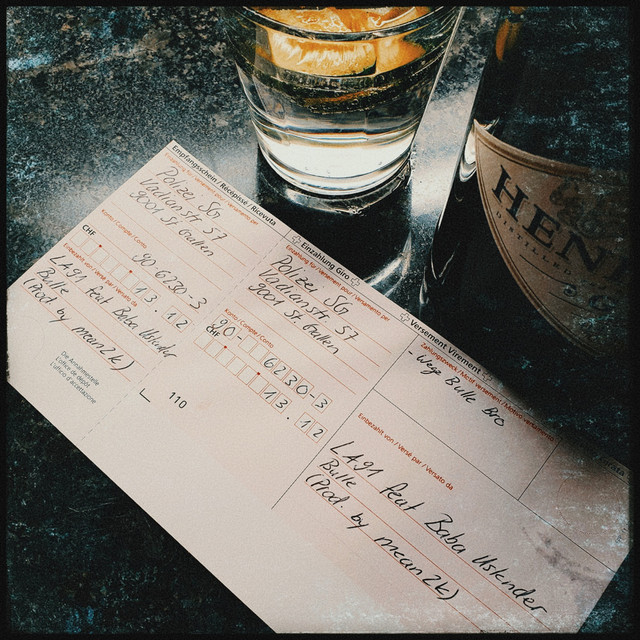 Empfangsschein / Récépissé / Ricevuta
Einzahlung für / Versement pour / Versamento per
Polizei SG
Vadianstr. 57
9001 St. Gallen
Konto / Compte / Conto
80-6230-3
CHF
13.12
Einbezahlt von / Versé par / Versato da
LA91 feat Baba Uslender
Bulle
(Prod. by mean2k)
Die Annahmestelle
L'office de dépôt
L'ufficio d'accettazione
Einzahlung Giro
Einzahlung für / Versement pour / Versamento per
Polizei SG
Vadianstr. 57
9001 St. Gallen
Konto / Compte / Conto
80-6230-3
CHF
13.12
110
Versement Virement
Zahlungszweck / Motif versement / Motivo versamento
Wege Bulle Bro
Einbezahlt von / Versé par / Versato da
LA91 feat Baba Uslender
Bulle
(Prod. by mean2k)
HEN
DISTILLED